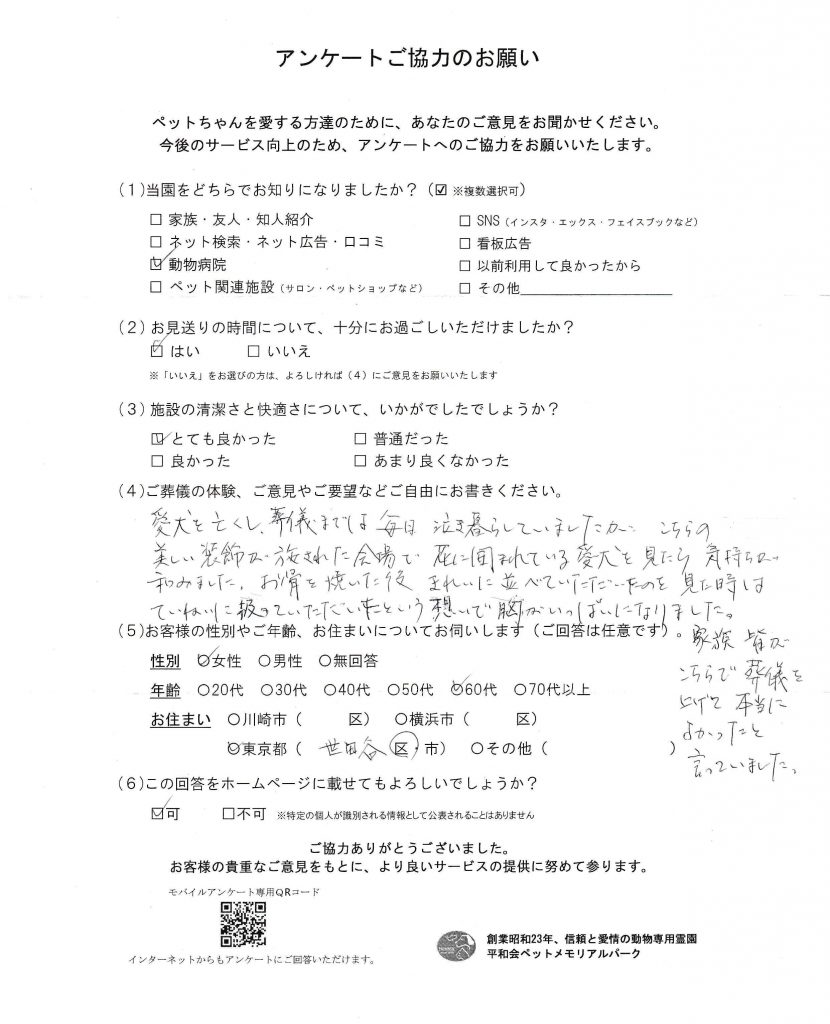 アンケートご協力のお願い
ペットちゃんを愛する方達のために、あなたのご意見をお聞かせください。
今後のサービス向上のため、アンケートへのご協力をお願いいたします。
(1)当園をどちらでお知りになりましたか？(☑ ※複数選択可)
□ 家族・友人・知人紹介
□ SNS (インスタ・エックス・フェイスブックなど)
□ ネット検索・ネット広告・口コミ
□ 看板広告
☑ 動物病院
□ 以前利用して良かったから
□ ペット関連施設 (サロン・ペットショップなど)
□ その他
(2) お見送りの時間について、十分にお過ごしいただけましたか？
☑ はい □ いいえ
※「いいえ」をお選びの方は、よろしければ(4)にご意見をお願いいたします
(3) 施設の清潔さと快適さについて、いかがでしたでしょうか？
☑ とても良かった □ 普通だった
□ 良かった □ あまり良くなかった
(4)ご葬儀の体験、ご意見やご要望などご自由にお書きください。
愛犬を亡くし、葬儀までは毎日 泣き暮らしていましたが、こちらの
美しい装飾が施された会場で 花に囲まれている愛犬を見たら 気持ちが
和みました。お骨を焼いた後 きれいに並べていただいたのを見た時は
ていねいに扱っていただいたという想いで胸がいっぱいになりました。
家族 皆が
こちらで 葬儀を
上げて 本当に
よかったと
言っていました。
(5)お客様の性別やご年齢、お住まいについてお伺いします(ご回答は任意です)。
性別 ☑女性 ○男性 ○無回答
年齢 ○20代 ○30代 ○40代 ○50代 ☑60代 ○70代以上
お住まい ○川崎市( 区) ○横浜市( 区)
☑東京都( 世田谷 区・市) ○その他( )
(6)この回答をホームページに載せてもよろしいでしょうか？
☑可 □不可 ※特定の個人が識別される情報として公表されることはありません
ご協力ありがとうございました。
お客様の貴重なご意見をもとに、より良いサービスの提供に努めて参ります。
モバイルアンケート専用QRコード
インターネットからもアンケートにご回答いただけます。
創業昭和23年、信頼と愛情の動物専用霊園
平和会ペットメモリアルパーク